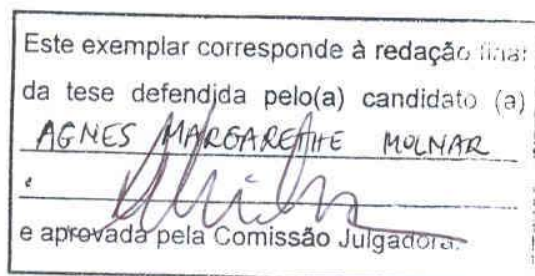 Este exemplar corresponde à redação final
da tese defendida pelo(a) candidato (a)
AGNES MARGARETHE MOLNAR
e
e aprovada pela Comissão Julgadora.